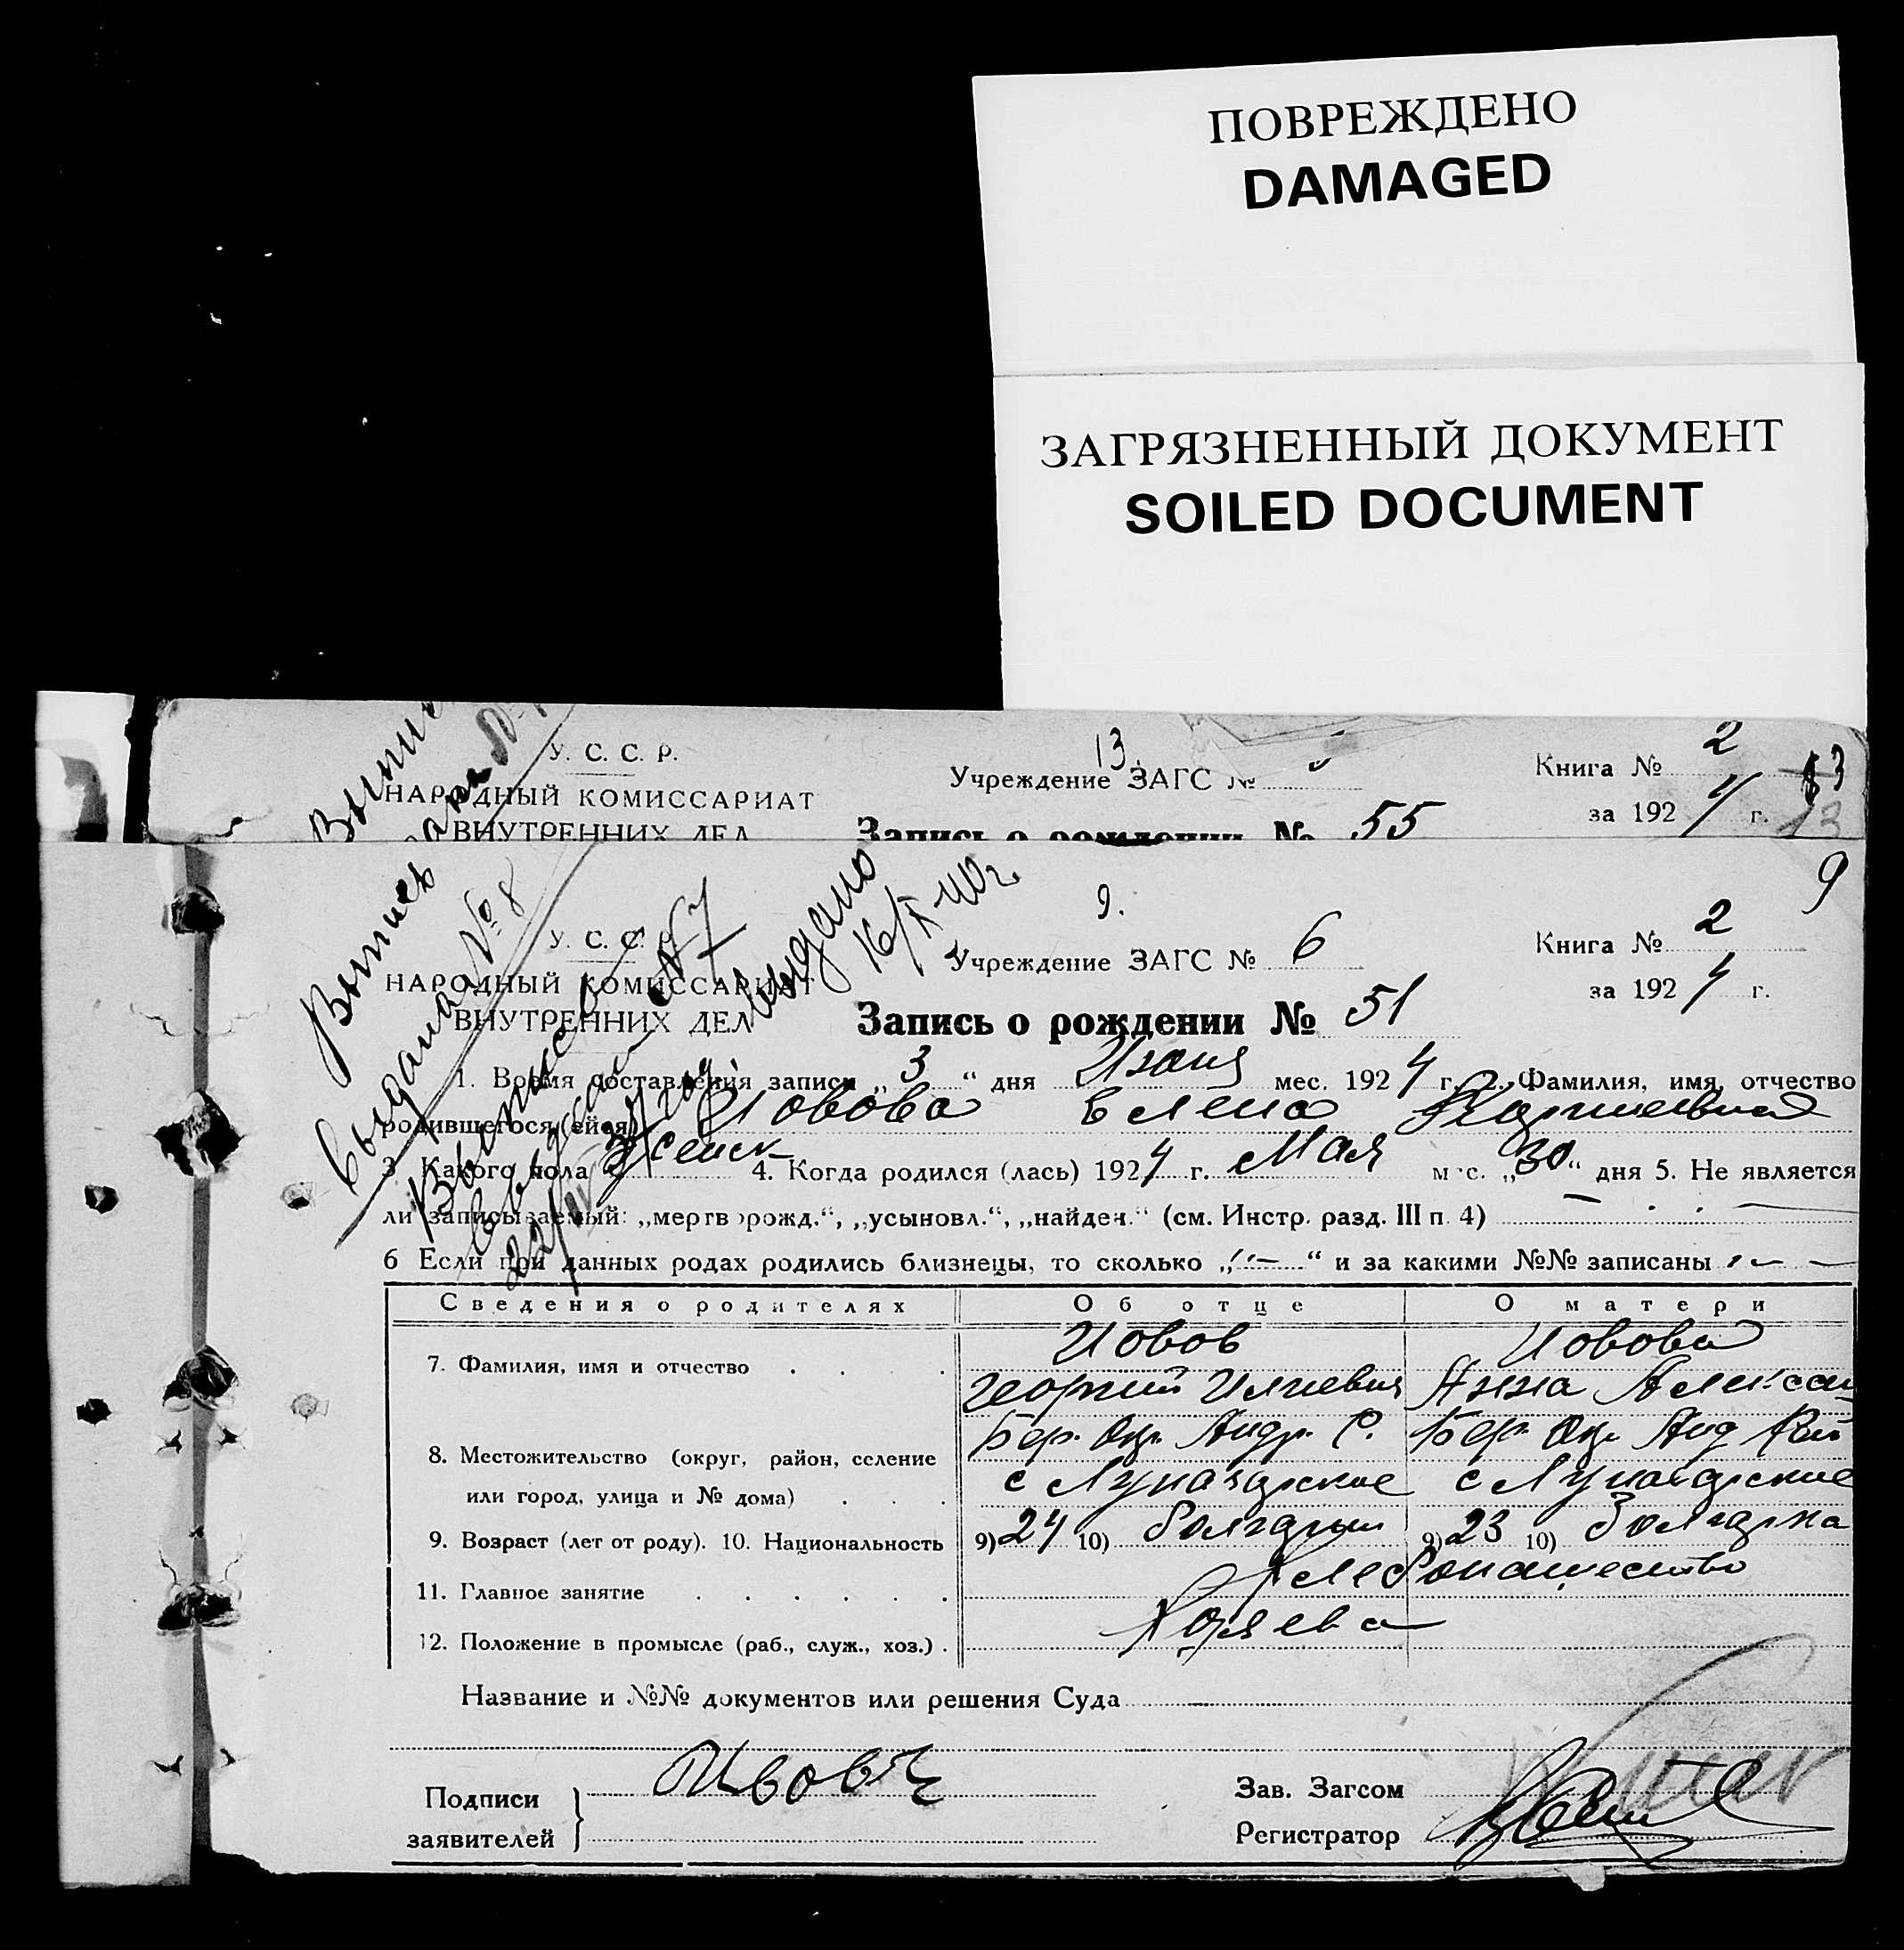 ПОВРЕЖДЕНО
DAMAGED
ЗАГРЯЗНЕННЫЙ ДОКУМЕНТ
SOILED DOCUMENT
У. С. С. Р.
НАРОДНЫЙ КОМИССАРИАТ
ВНУТРЕННИХ ДЕЛ
13.
Учреждение ЗАГС №
Книга № 2
за 1924 г.
Запись о рождении № 55
Выпись
выдана № 8
Выпись №7
выдано
16/X 40 г.
9
9.
У. С. С. Р.
НАРОДНЫЙ КОМИССАРИАТ
ВНУТРЕННИХ ДЕЛ
Учреждение ЗАГС № 6
Книга № 2
за 1924 г.
Запись о рождении № 51
1. Время составления записи „3“ дня Июня мес. 1924 г. 2. Фамилия, имя, отчество
родившегося (ейся) Иовова Елена Георгиевна
3. Какого пола Женск 4. Когда родился (лась) 1924 г. Мая мес. „30“ дня 5. Не является
ли записываемый: „мертворожд.“, „усыновл.“, „найден.“ (см. Инстр. разд. III п. 4) —
6 Если при данных родах родились близнецы, то сколько „—“ и за какими №№ записаны —
Сведения о родителях Об отце О матери
7. Фамилия, имя и отчество Иовов Иовова
Георгий Илиевич Анна Алексан
8. Местожительство (округ, район, селение Бер. Окр. Андр. Р. Бер. Окр. Анд Рай
или город, улица и № дома) с Луначарское с Луначарское
9. Возраст (лет от роду). 10. Национальность 9) 24 10) болгарин 9) 23 10) болгарка
11. Главное занятие Хлебопашество
12. Положение в промысле (раб., служ., хоз.) Хозяева
Название и №№ документов или решения Суда —
Подписи
заявителей
Зав. Загсом
Регистратор